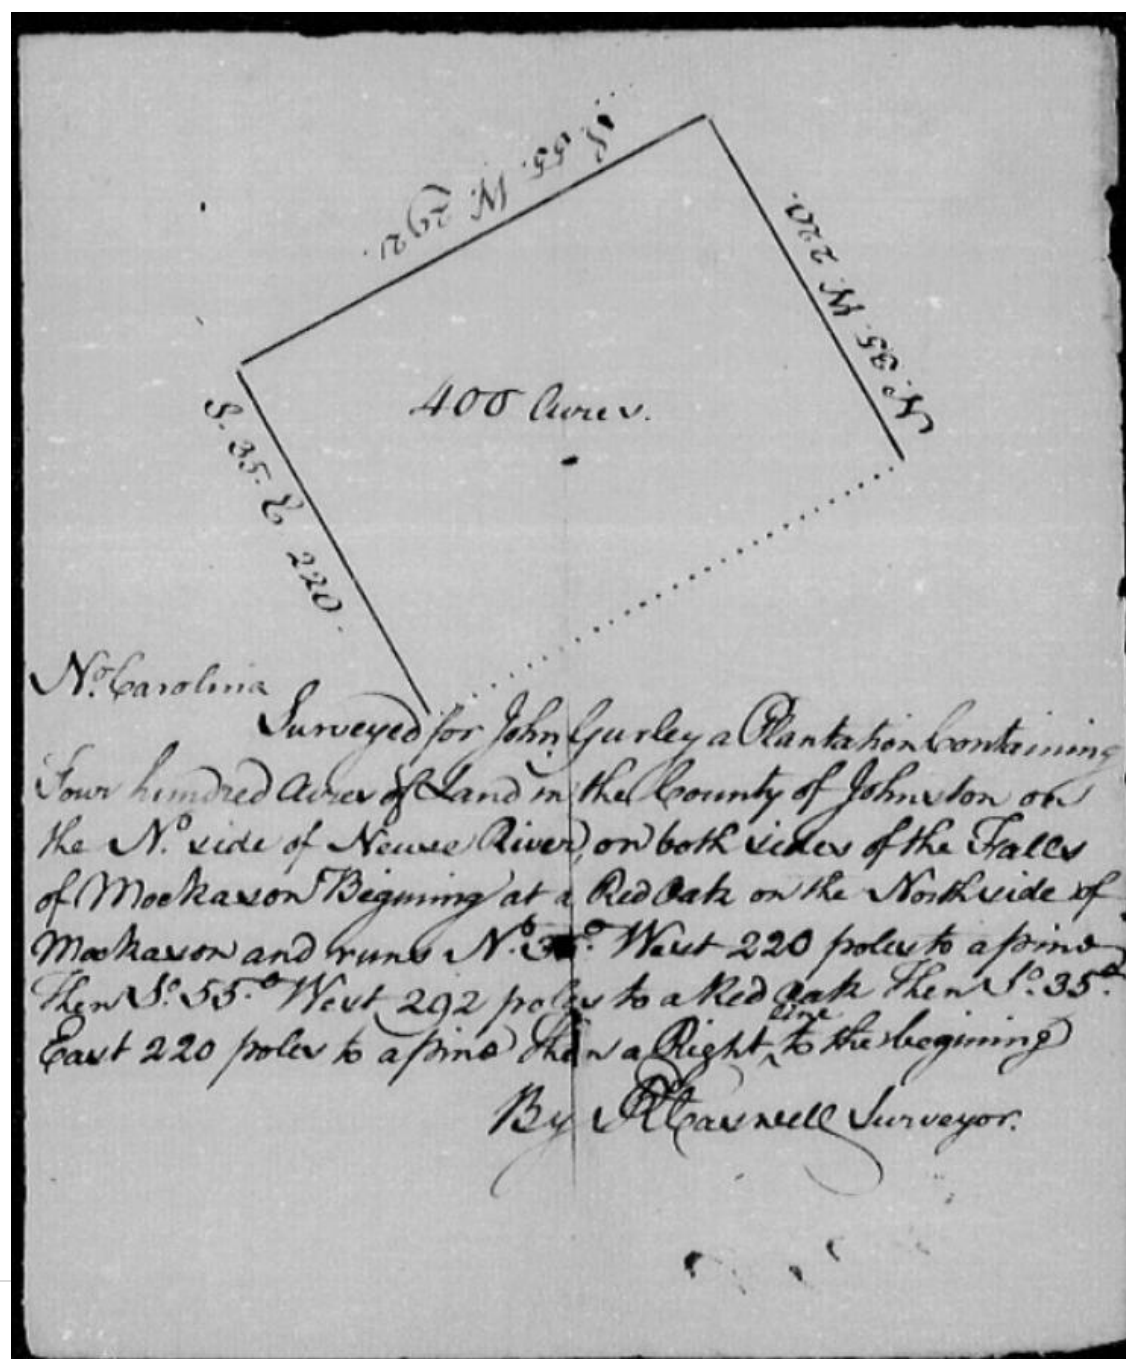 S. 55. W. 292.
N. 35. W. 220.
400 Acres.
S. 35. E 220.
No. Carolina
Surveyed for John Gurley a Plantation Containing
Four hundred Acres of Land in the County of Johnston on
the No. side of Neuse River, on both sides of the Falls
of Mockason Begining at a Red Oak on the North side of
Mockason and runs No. 35.o West 220 poles to a pine
Then So. 55.o West 292 poles to a Red oak Then So. 35.o
East 220 poles to a pine Then a Right line to the begining
By RCaswell Surveyor.